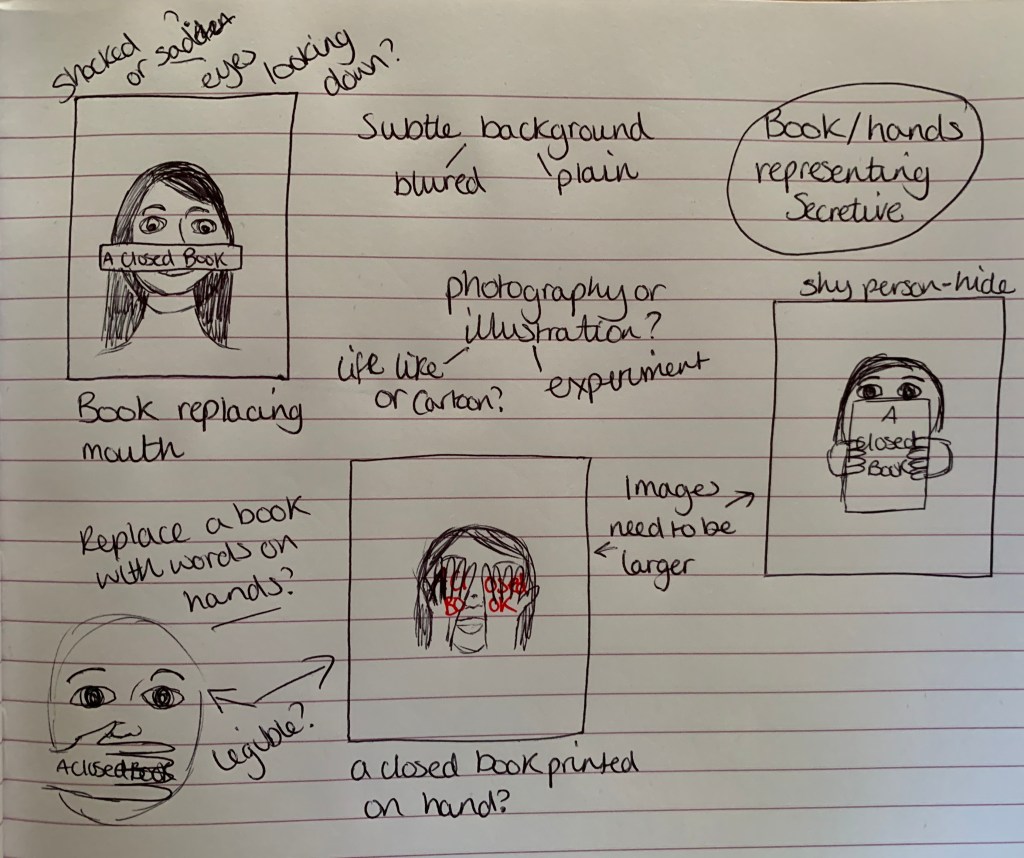 shocked
or sad
eyes looking
down?
A Closed Book
Book replacing
mouth
Subtle background
blured plain
Book/hands
representing
Secretive
photography or
illustration?
life like
or cartoon?
experiment
shy person-hide
A
closed
Book
Images
need to be
larger
Replace a book
with words on
hands?
A Closed Book
legible?
A Cl osed
BO OK
a closed book printed
on hand?